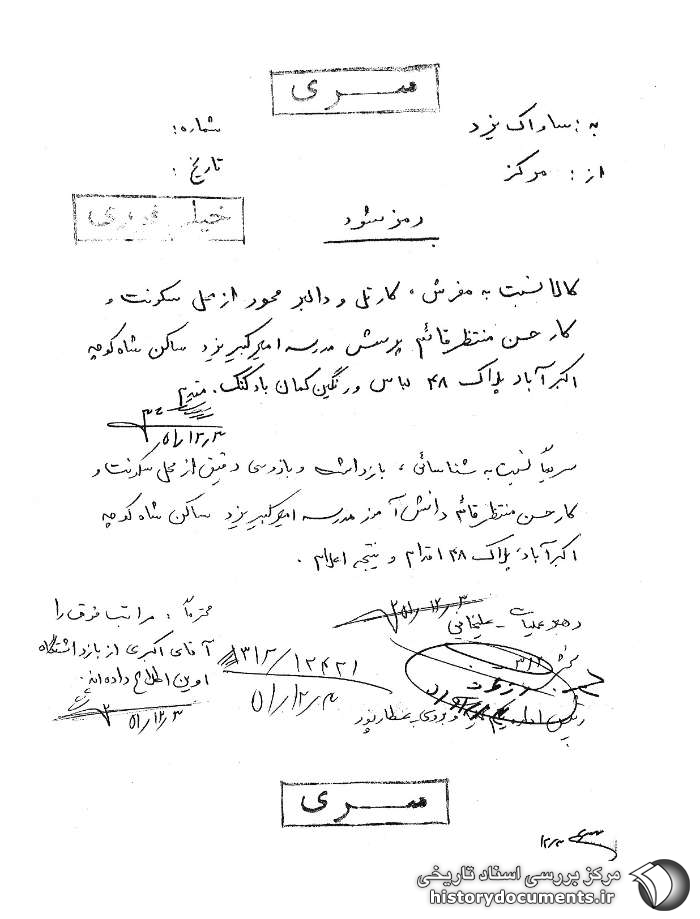 سری
به: ساواک یزد
شماره:
از: مرکز
تاریخ:
خیلی فوری
رمز شود
کالا نسبت به مفرش، کارتل و دالبر محور از محل سکونت و
کار حسن منتظر قائم پرسش مدرسه امیرکبیر یزد ساکن شاه کوچه
اکبرآباد پلاک ۴۸ لباس و رنگین کمان بادکنک. مقدم
۵۱/۱۲/۳
سریعاً نسبت به شناسائی، بازداشت و بازرسی دقیق از محل سکونت و
کار حسن منتظر قائم دانش آموز مدرسه امیرکبیر یزد ساکن شاه کوچه
اکبرآباد پلاک ۴۸ اقدام و نتیجه اعلام.
رهبر عملیات
۵۱/۱۲/۳
محترماً: مراتب فوق را
آقای اکبری از بازداشتگاه
اوین اطلاع داده اند.
۵۱/۱۲/۳
۳۱۲/۱۲۴۲۱
۵۱/۱۲/۳
۳۱۲
رئیس اداره یکم عطارپور
سری
۱۲/۳
مرکز بررسی اسناد تاریخی
historydocuments.ir